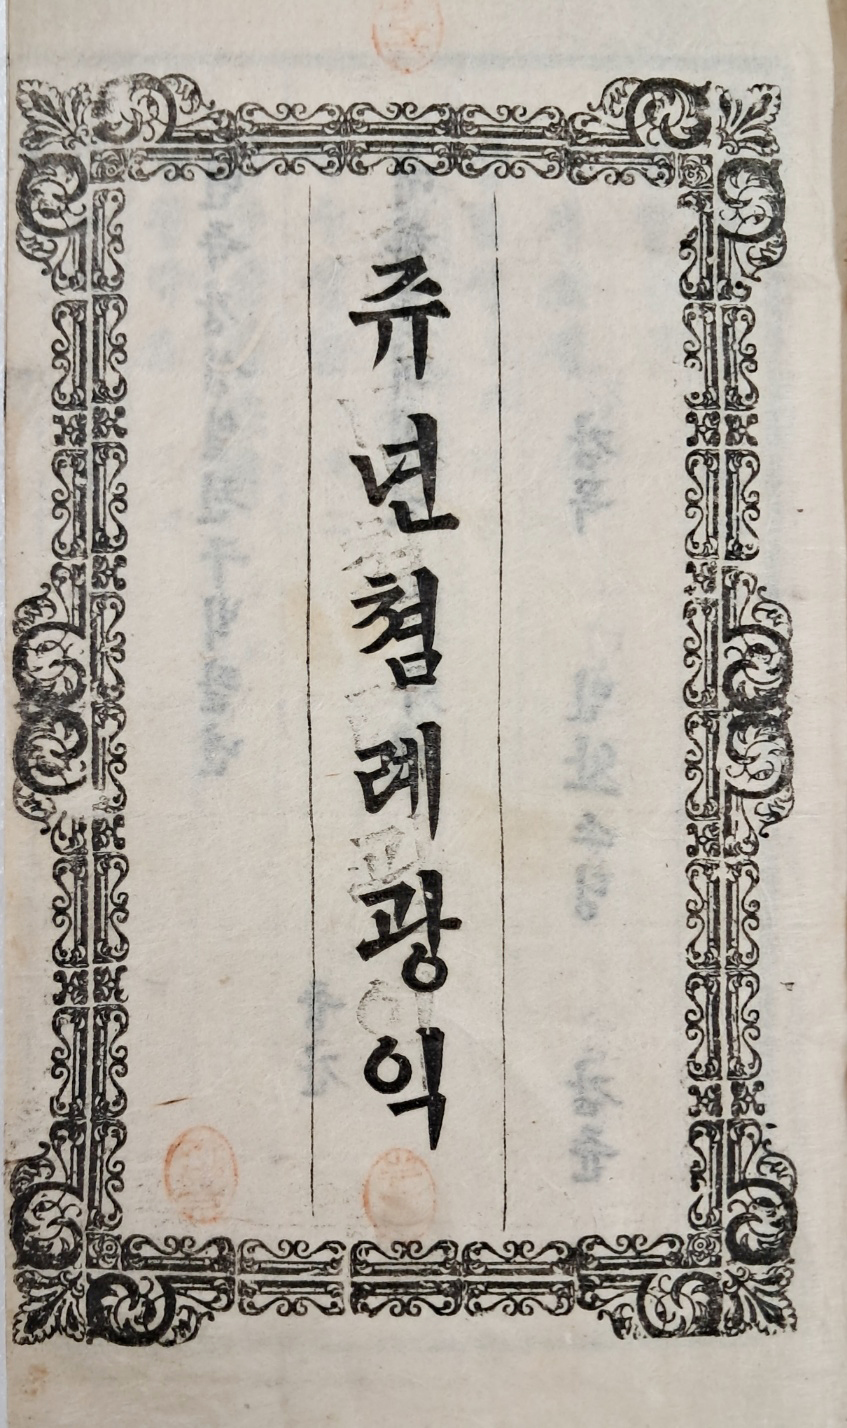 쥬년쳠례광익